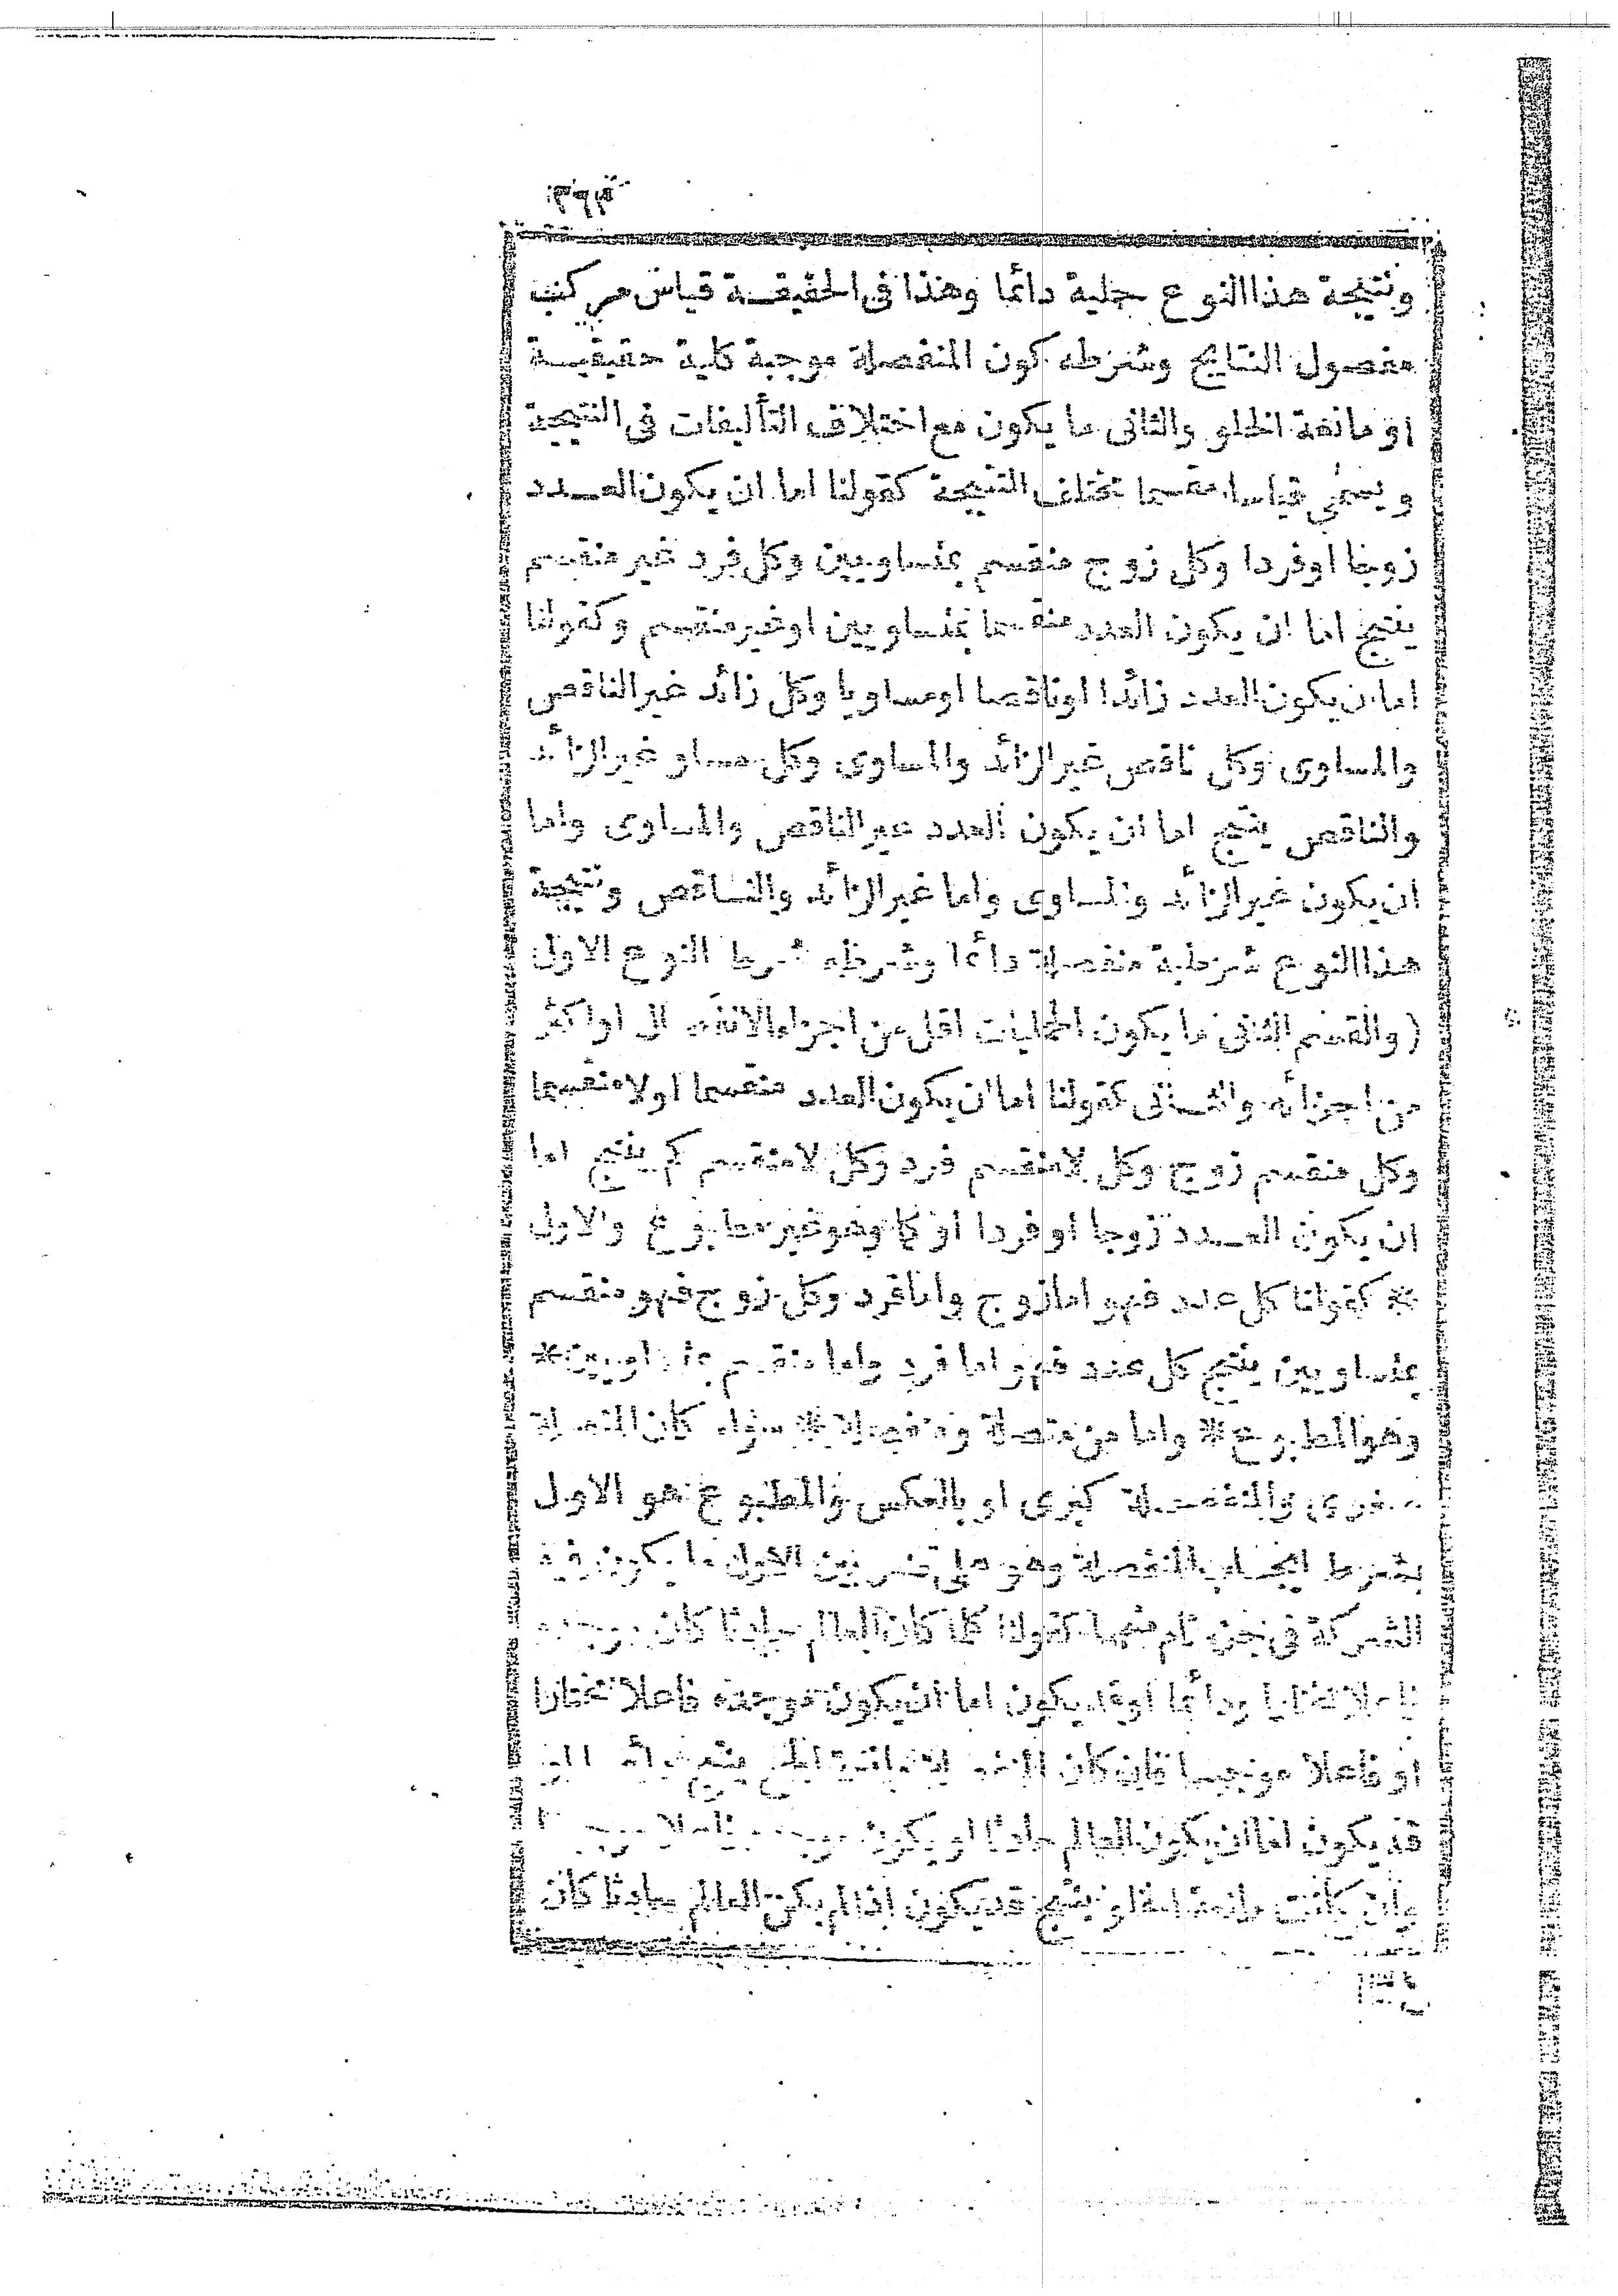 ونتيجة هذا النوع حملية دائما وهذا فى الحقيقة قياس مركب
مفصول النتايج وشرطه كون المنفصلة موجبة كلية حقيقية
او مانعة الخلو والثانى ما يكون مع اختلاف التأليفات فى النتيجة
ويسمى قياسا مقسما مختلف النتيجة كقولنا اما ان يكون العدد
زوجا او فردا وكل زوج منقسم بمتساويين وكل فرد غير منقسم
ينتج اما ان يكون العدد منقسما بمتساويين او غير منقسم وكقولنا
اما ان يكون العدد زائدا او ناقصا او مساويا وكل زائد غير الناقص
والمساوى وكل ناقص غير الزائد والمساوى وكل مساو غير الزائد
والناقص ينتج اما ان يكون العدد غير الناقص والمساوى واما
ان يكون غير الزائد والمساوى واما غير الزائد والناقص ونتيجة
هذا النوع شرطية منفصلة دائما وشرطه شرط النوع الاول
(والقسم الثانى ما يكون الحمليات اقل من اجزاء الانفصال او اكثر
من اجزائه والثانى كقولنا اما ان يكون العدد منقسما او لا منقسما
وكل منقسم زوج وكل لا منقسم فرد وكل لا منقسم كم ينتج اما
ان يكون العدد زوجا او فردا او كما وهو غير مطبوع والاول
* كقولنا كل عدد فهو اما زوج واما فرد وكل زوج فهو منقسم
بمتساويين ينتج كل عدد فهو اما فرد واما منقسم بمتساويين *
وهو المطبوع * واما من متصلة ومنفصلة * سواء كان المتصلة
صغرى والمنفصلة كبرى او بالعكس والمطبوع هو الاول
بشرط ايجاب المنفصلة وهو على قسمين الاول ما يكون فيه
الشركة فى جزء تام منهما كقولنا كلما كان العالم حادثا كان موجده
فاعلا مختارا ودائما او قد يكون اما ان يكون موجده فاعلا مختارا
او فاعلا موجبا فان كان المنفصلة مانعة الجمع ينتج
قد يكون اما ان يكون العالم حادثا او يكون موجده فاعلا موجبا
وان كانت مانعة الخلو ينتج قد يكون اذا لم يكن العالم حادثا كان